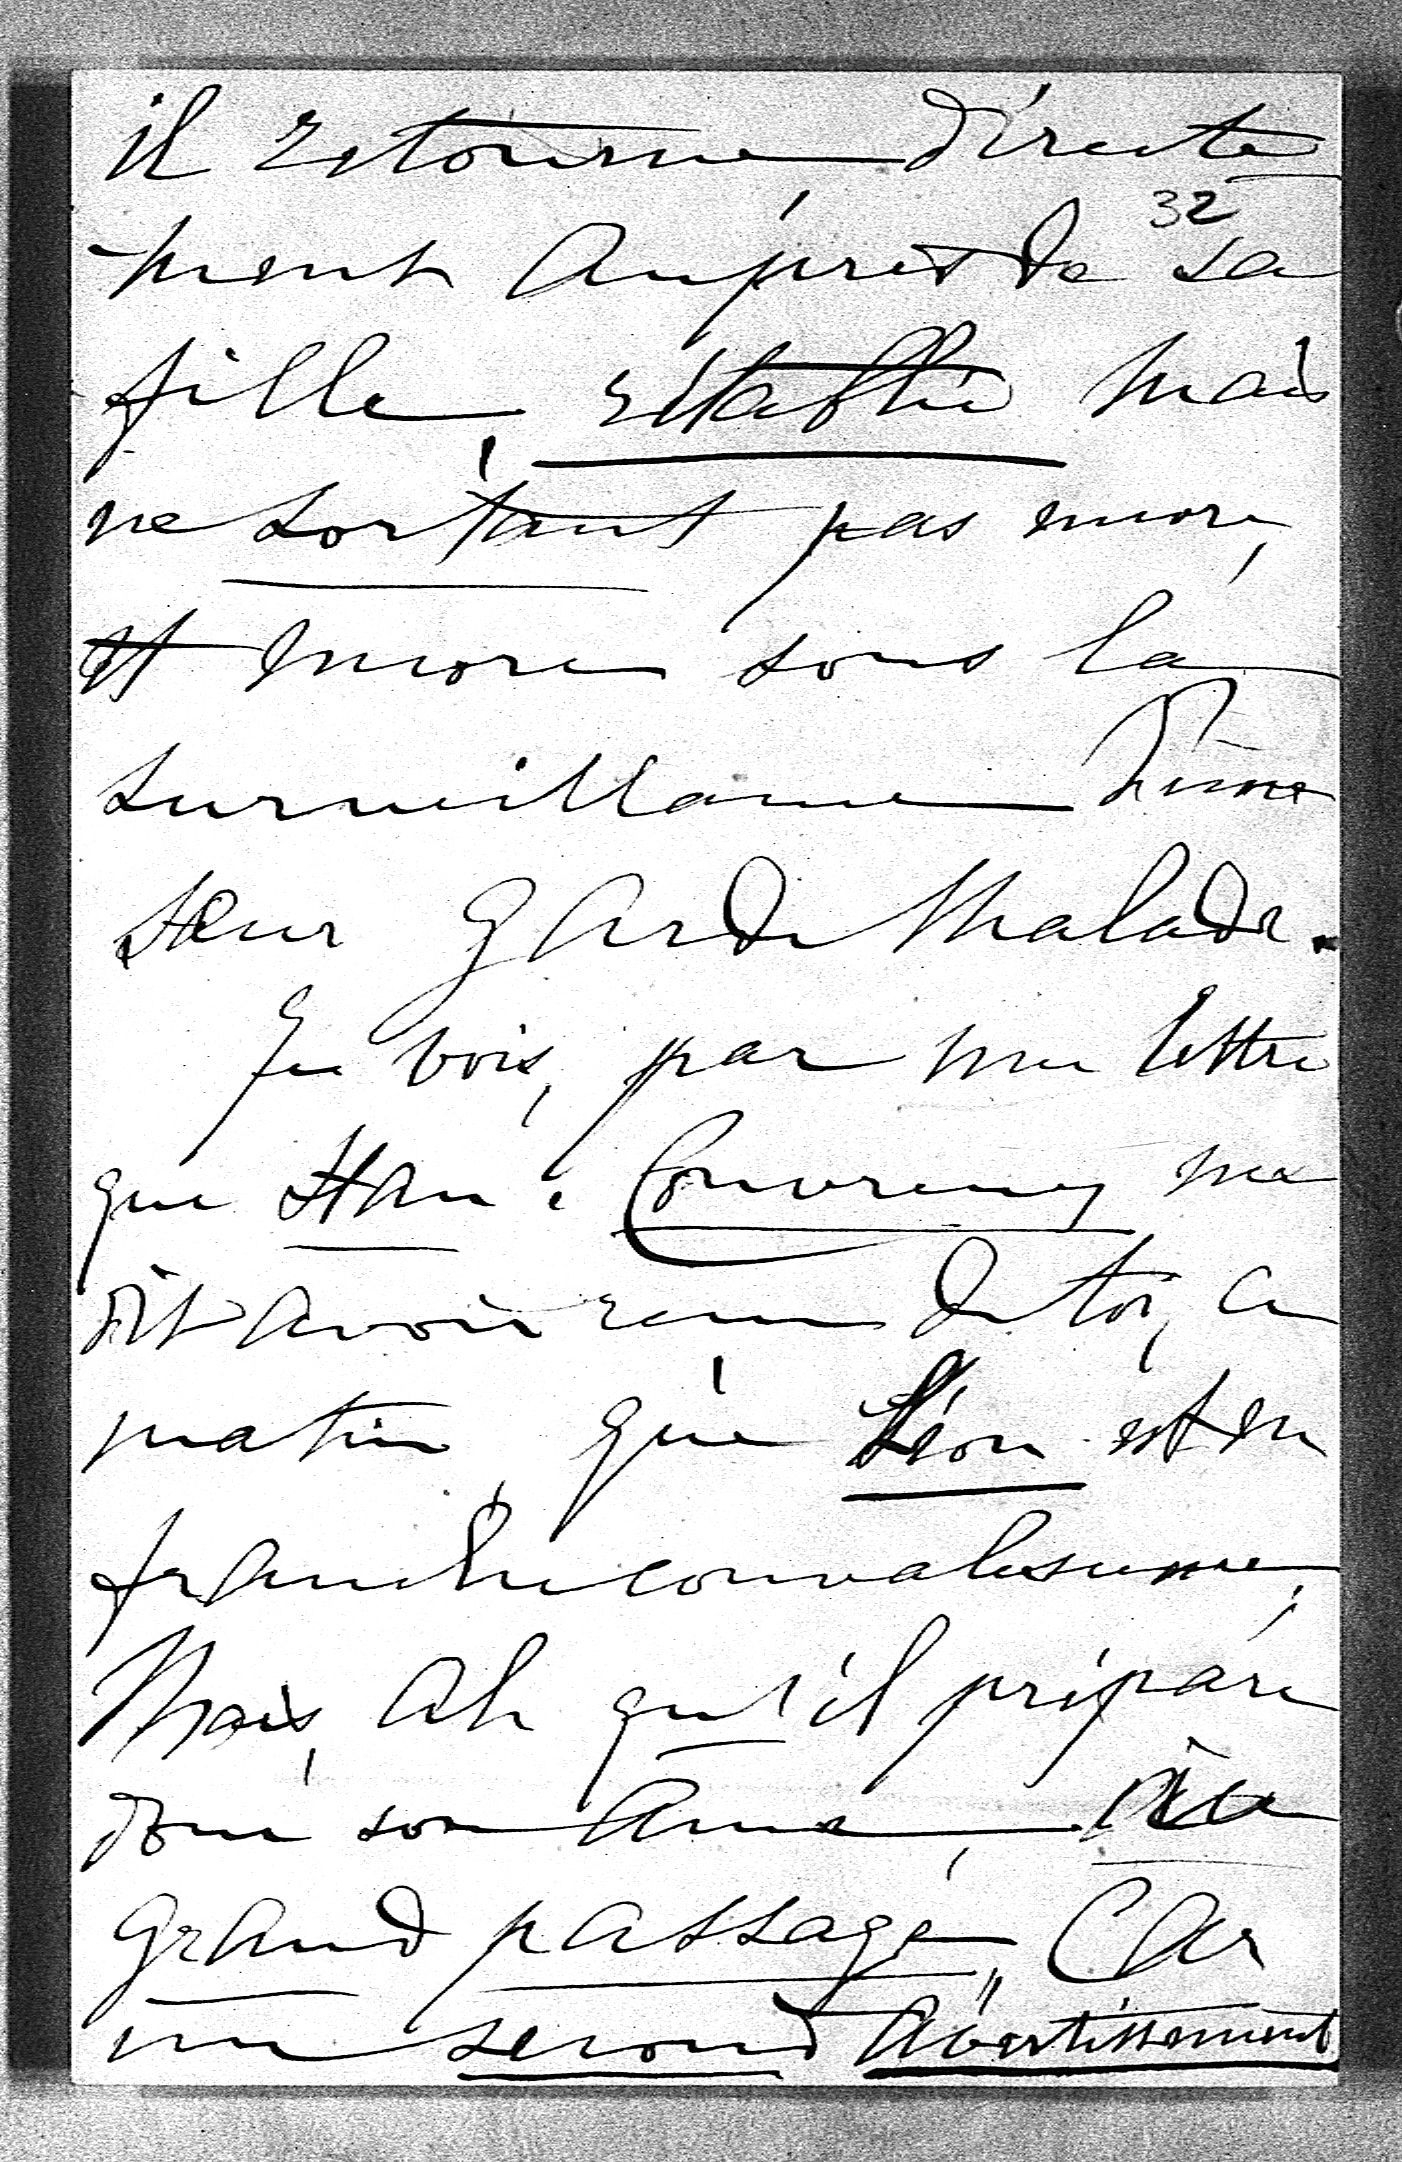 il retourne directe
32
ment auprès de sa
fille, rétablie mais
ne sortant pas encore,
et encore sous la
surveillance d'une
sœur garde malade.
Je vois, par une lettre
que Stan: me
dit avoir reçue de toi, ce
matin, que Léon est en
franche convalescence,
Mais, Ah qu'il prépare
donc son âme, au
grand passage, Car
un second avertissement